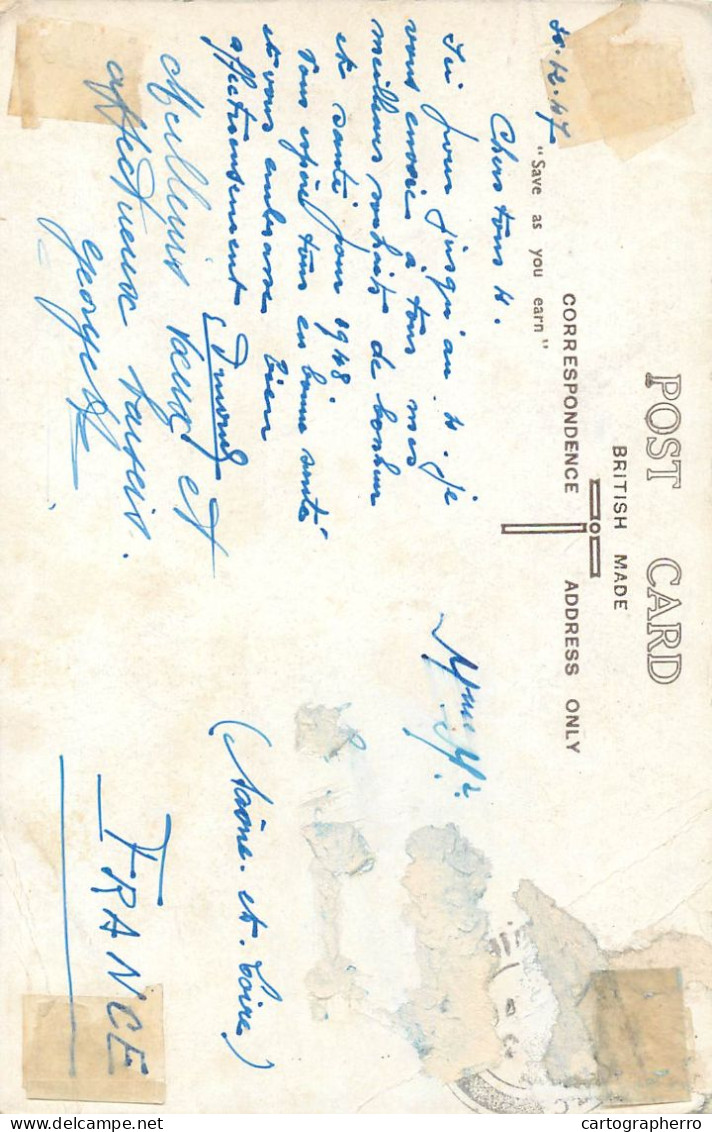 POST CARD
BRITISH MADE
CORRESPONDENCE ADDRESS ONLY
"Save as you earn"
30.12.47
Chers tous 4.
Ici pour jusqu'au 4. je
vous envoie à tous mes
meilleurs souhaits de bonheur
et santé pour 1948
Vous espère tous en bonne santé
et vous embrasse bien
affectueusement Edmond
Meilleurs vœux et
affectueux baisers.
Georgette
Mme Mr
(Saône-et-Loire)
FRANCE
delcampe.net
cartographerro